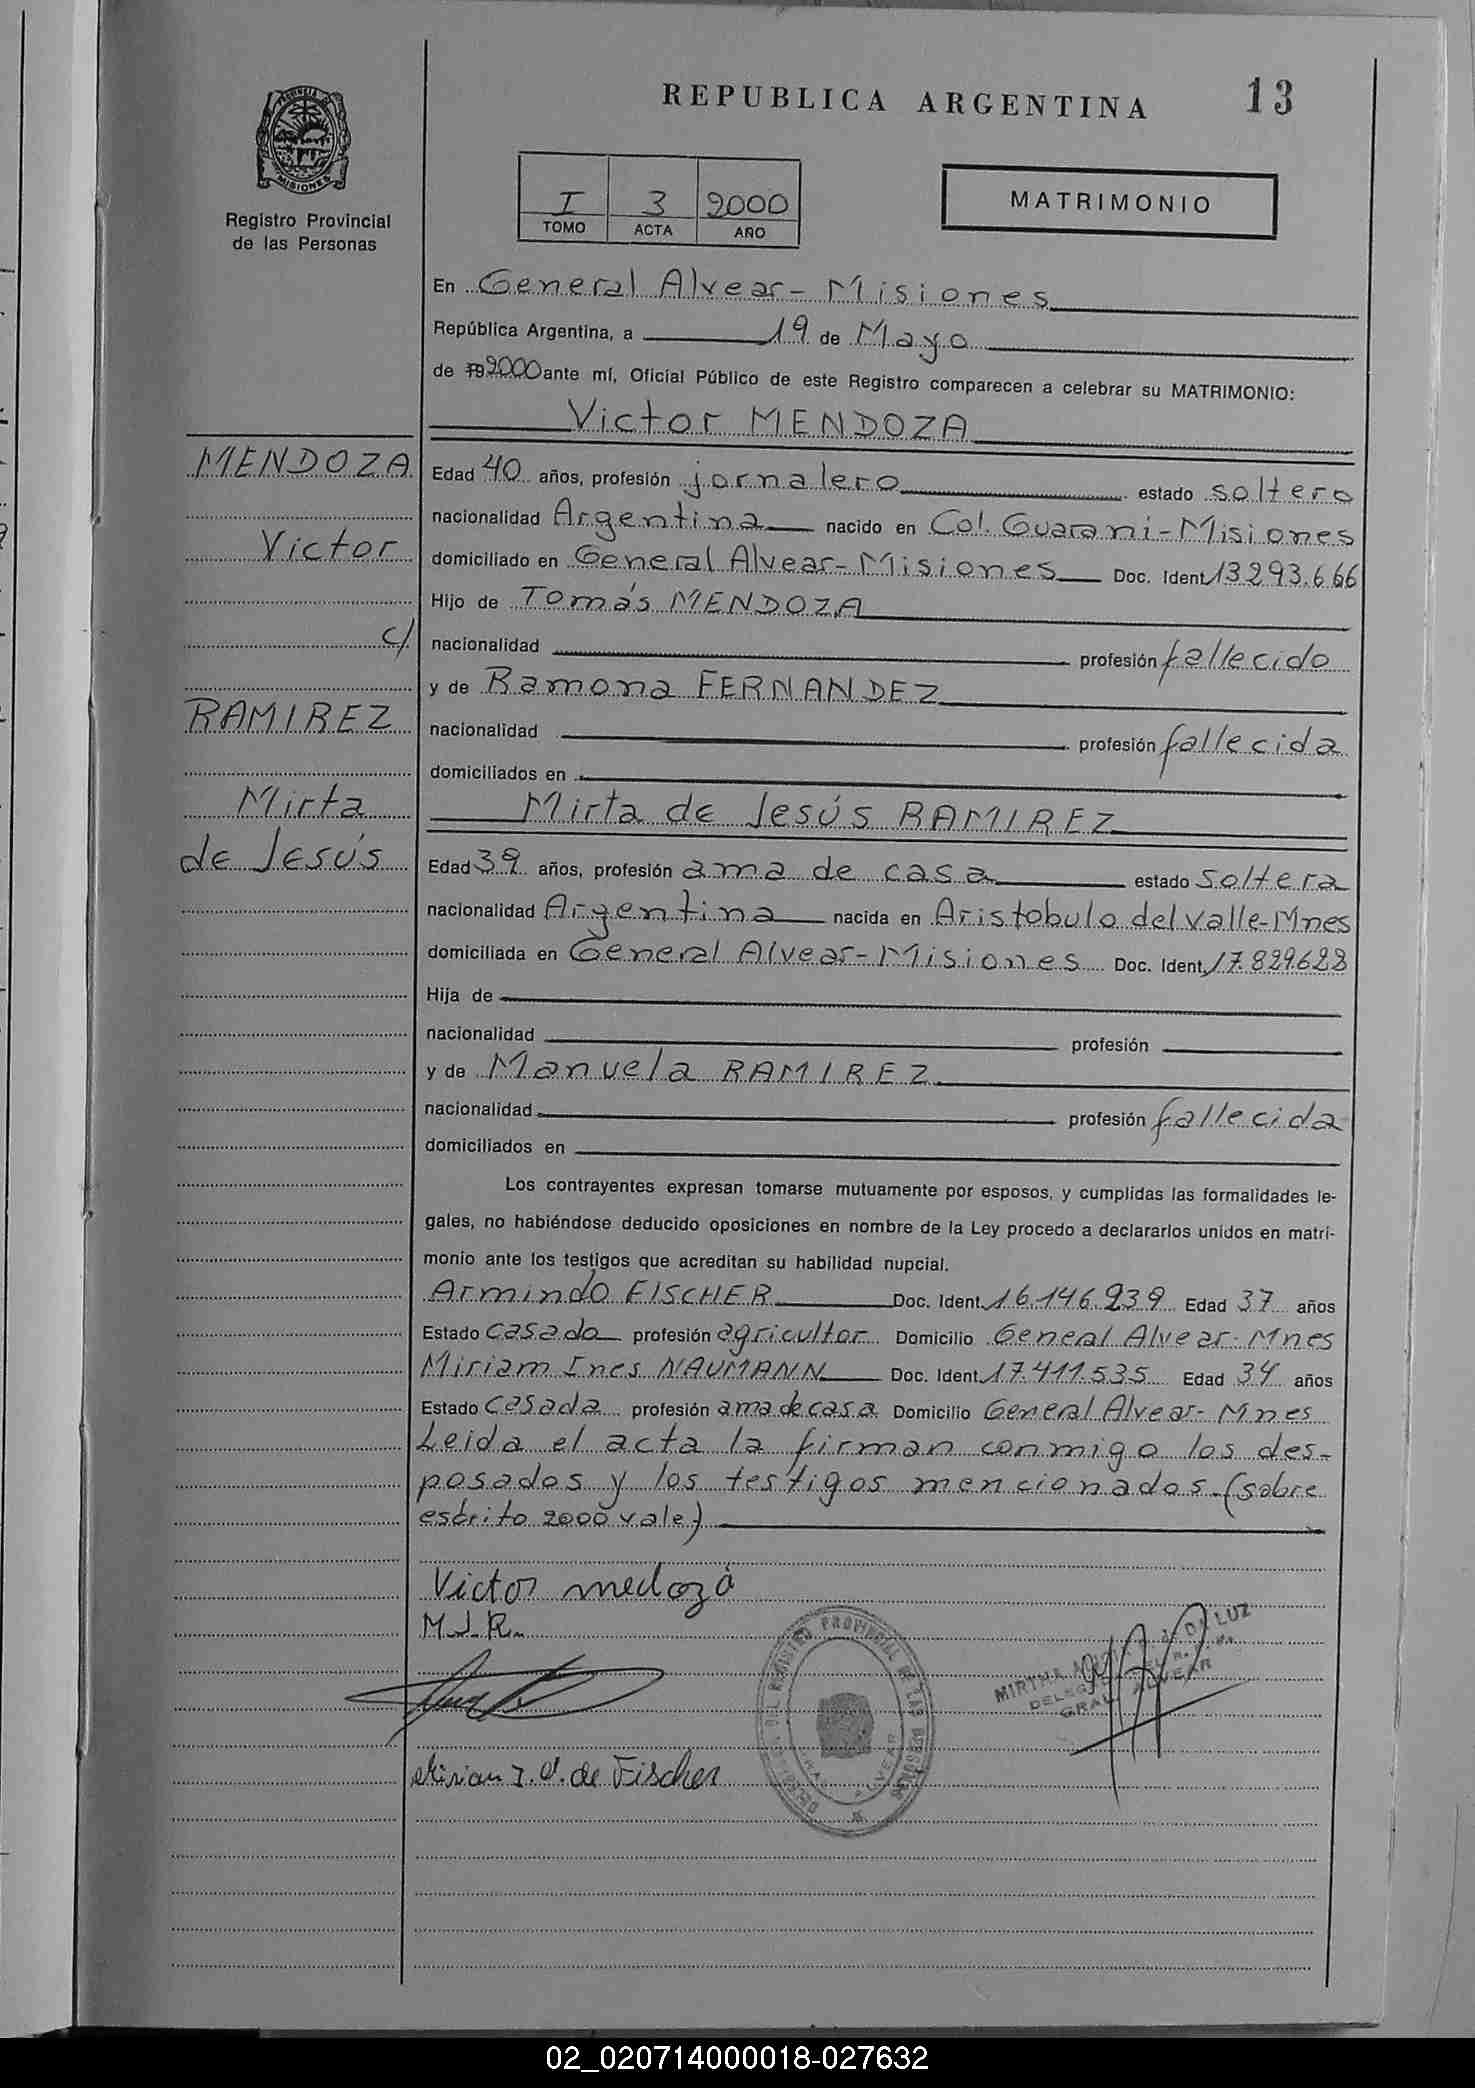 REPUBLICA ARGENTINA 13
PROVINCIA DE
MISIONES
Registro Provincial
de las Personas
I 3 2000
TOMO ACTA AÑO
MATRIMONIO
En General Alvear - Misiones
República Argentina, a 19 de Mayo
de 19 2000 ante mí, Oficial Público de este Registro comparecen a celebrar su MATRIMONIO:
Victor MENDOZA
MENDOZA
Victor
c/
RAMIREZ
Mirta
de Jesús
Edad 40 años, profesión jornalero estado soltero
nacionalidad Argentina nacido en Col. Guarani - Misiones
domiciliado en General Alvear - Misiones Doc. Ident 13.293.666
Hijo de Tomás MENDOZA
nacionalidad profesión fallecido
y de Ramona FERNANDEZ
nacionalidad profesión fallecida
domiciliados en
Mirta de Jesús RAMIREZ
Edad 39 años, profesión ama de casa estado soltera
nacionalidad Argentina nacida en Aristobulo del Valle - Mnes
domiciliada en General Alvear - Misiones Doc. Ident.
Hija de
nacionalidad profesión
y de Manuela RAMIREZ
nacionalidad profesión fallecida
domiciliados en
Los contrayentes expresan tomarse mutuamente por esposos, y cumplidas las formalidades le-
gales, no habiéndose deducido oposiciones en nombre de la Ley procedo a declararlos unidos en matri-
monio ante los testigos que acreditan su habilidad nupcial.
Armindo FISCHER Doc. Ident. 16.146.939 Edad 37 años
Estado casado profesión agricultor Domicilio General Alvear - Mnes
Miriam Ines NAUMANN Doc. Ident. 17.411.535 Edad 34 años
Estado casada profesión ama de casa Domicilio General Alvear - Mnes
Leida el acta la firman conmigo los des-
posados y los testigos mencionados. (sobre
escrito 2000 vale)
Victor medoza
M.J.R.
Mirian I. N. de Fischer
REGISTRO PROVINCIAL DE LAS PERSONAS
GRAL. ALVEAR
MIRTHA DA LUZ
GRAL. ALVEAR
02_020714000018-027632